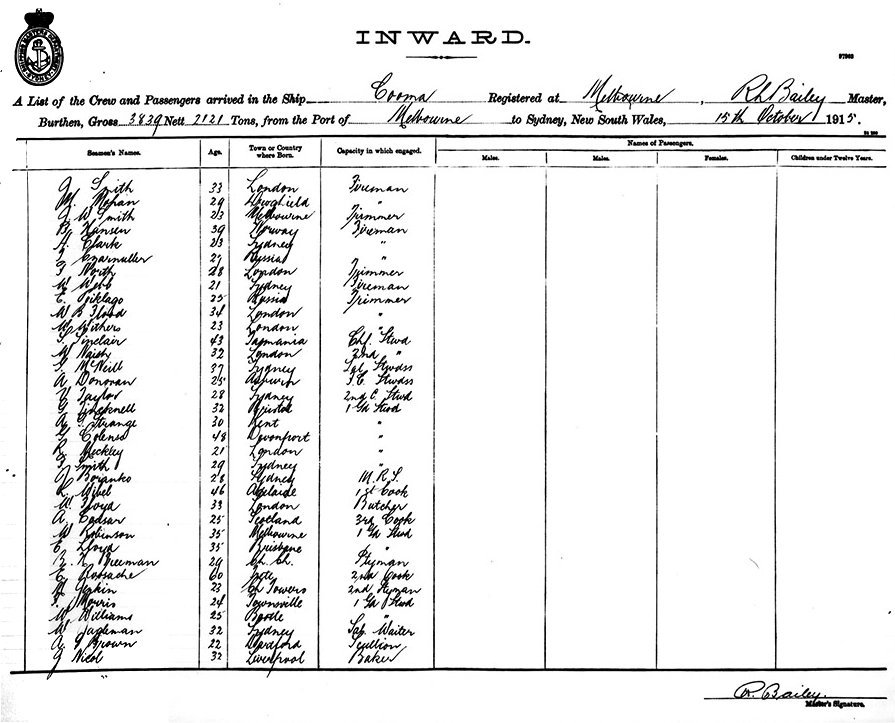 INWARD.
37963
A List of the Crew and Passengers arrived in the Ship Cooma Registered at Melbourne, R L Bailey Master,
Burthen, Gross 3839 Nett 2121 Tons, from the Port of Melbourne to Sydney, New South Wales, 15th October 1915.
Seamen's Names. Age. Town or Country where Born. Capacity in which engaged. Names of Passengers.
Males. Males. Females. Children under Twelve Years.
J Smith 33 London Fireman
M. Mohan 29 "
J W Smith 23 Melbourne Trimmer
B Hansen 39 Norway Fireman
A. Clark 23 Sydney "
27 Russia "
F North 28 London Trimmer
W Webb 21 Sydney Fireman
E. 25 Russia Trimmer
W B Flood 34 London "
W Withers 23 London "
Sinclair 43 Tasmania Chf. Stwd
W Naish 32 London 2nd "
McNeill 37 Sydney Stwdss
A Donovan 25 Stwdss
Taylor 28 Sydney 2nd C. Stwd
32 Bristol 1 Gd Stwd
A. Strange 30 Kent "
48 Devonport "
R. 21 London "
Smith 29 Sydney "
28 Sydney
46 Adelaide 1st Cook
W. 39 London Butcher
A. 25 Scotland 3rd Cook
W Robinson 35 Melbourne 1 Gd Stwd
E Lloyd 35 Brisbane "
29 Ch. Ch.
E 60 2nd Cook
23 Ch Towers 2nd
Morris 24 Townsville 1 Gd Stwd
W. Williams 25 Bootle "
W 32 Sydney Waiter
A G Brown 22 Scullion
J Nicol 32 Liverpool Baker
R. Bailey.
Master's Signature.